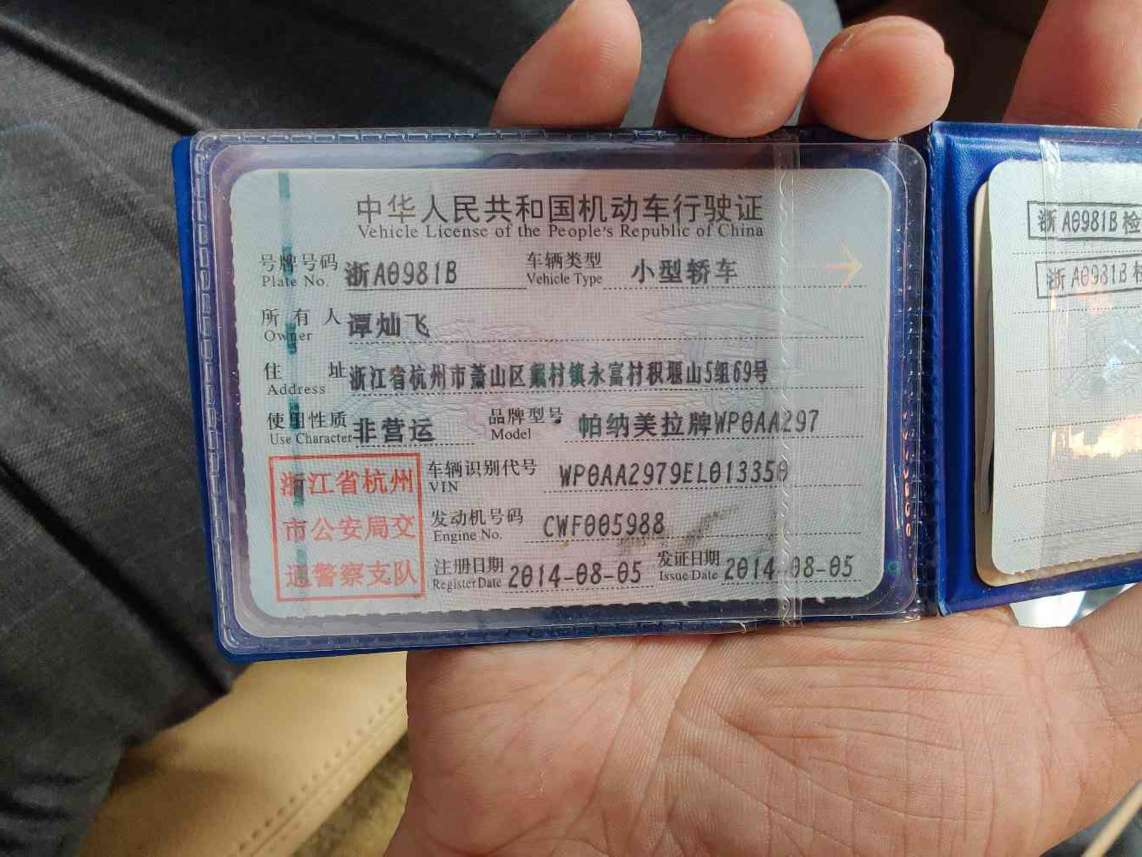 中华人民共和国机动车行驶证
Vehicle License of the People's Republic of China
号牌号码 浙A0981B 车辆类型 小型轿车
Plate No. Vehicle Type
所有人 谭灿飞
Owner
住址 浙江省杭州市萧山区戴村镇永富村积堰山5组69号
Address
使用性质 非营运 品牌型号 帕纳美拉牌WP0AA297
Use Character Model
浙江省杭州
市公安局交
通警察支队
车辆识别代号 WP0AA2979EL013350
VIN
发动机号码 CWF005988
Engine No.
注册日期 2014-08-05 发证日期 2014-08-05
Register Date Issue Date
浙A0981B检
浙A0981B检